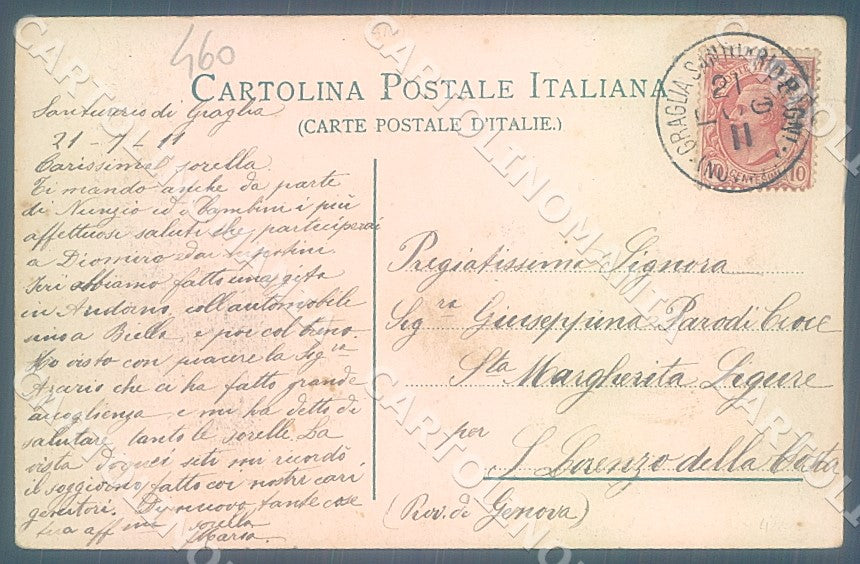 460
CARTOLINA POSTALE ITALIANA
(CARTE POSTALE D'ITALIE.)
Santuario di Graglia
21 - 7 - 11
Carissima sorella
Ti mando anche da parte
di Nunzio ed i bambini i più
affettuosi saluti che parteciperai
a Diomiro dai nipotini
Ieri abbiamo fatto una gita
in Andorno, coll'automobile
sino a Biella, e poi col treno.
Ho visto con piacere la Sig.ra
Acario che ci ha fatto grande
accoglienza e mi ha detto di
salutare tanto le sorelle. La
vista di quei siti mi ricordò
il soggiorno fatto coi nostri cari
genitori. Di nuovo tante cose
tua aff.ma sorella
Maria.
GRAGLIA SANTUARIO
(NOVARA)
21
11
CENTESIMI 10
Pregiatissima Signora
Sig.ra Giuseppina Parodi Croce
Sta Margherita Ligure
per
S. Lorenzo della Costa
(Prov. di Genova)
CARTOLINOMANIA